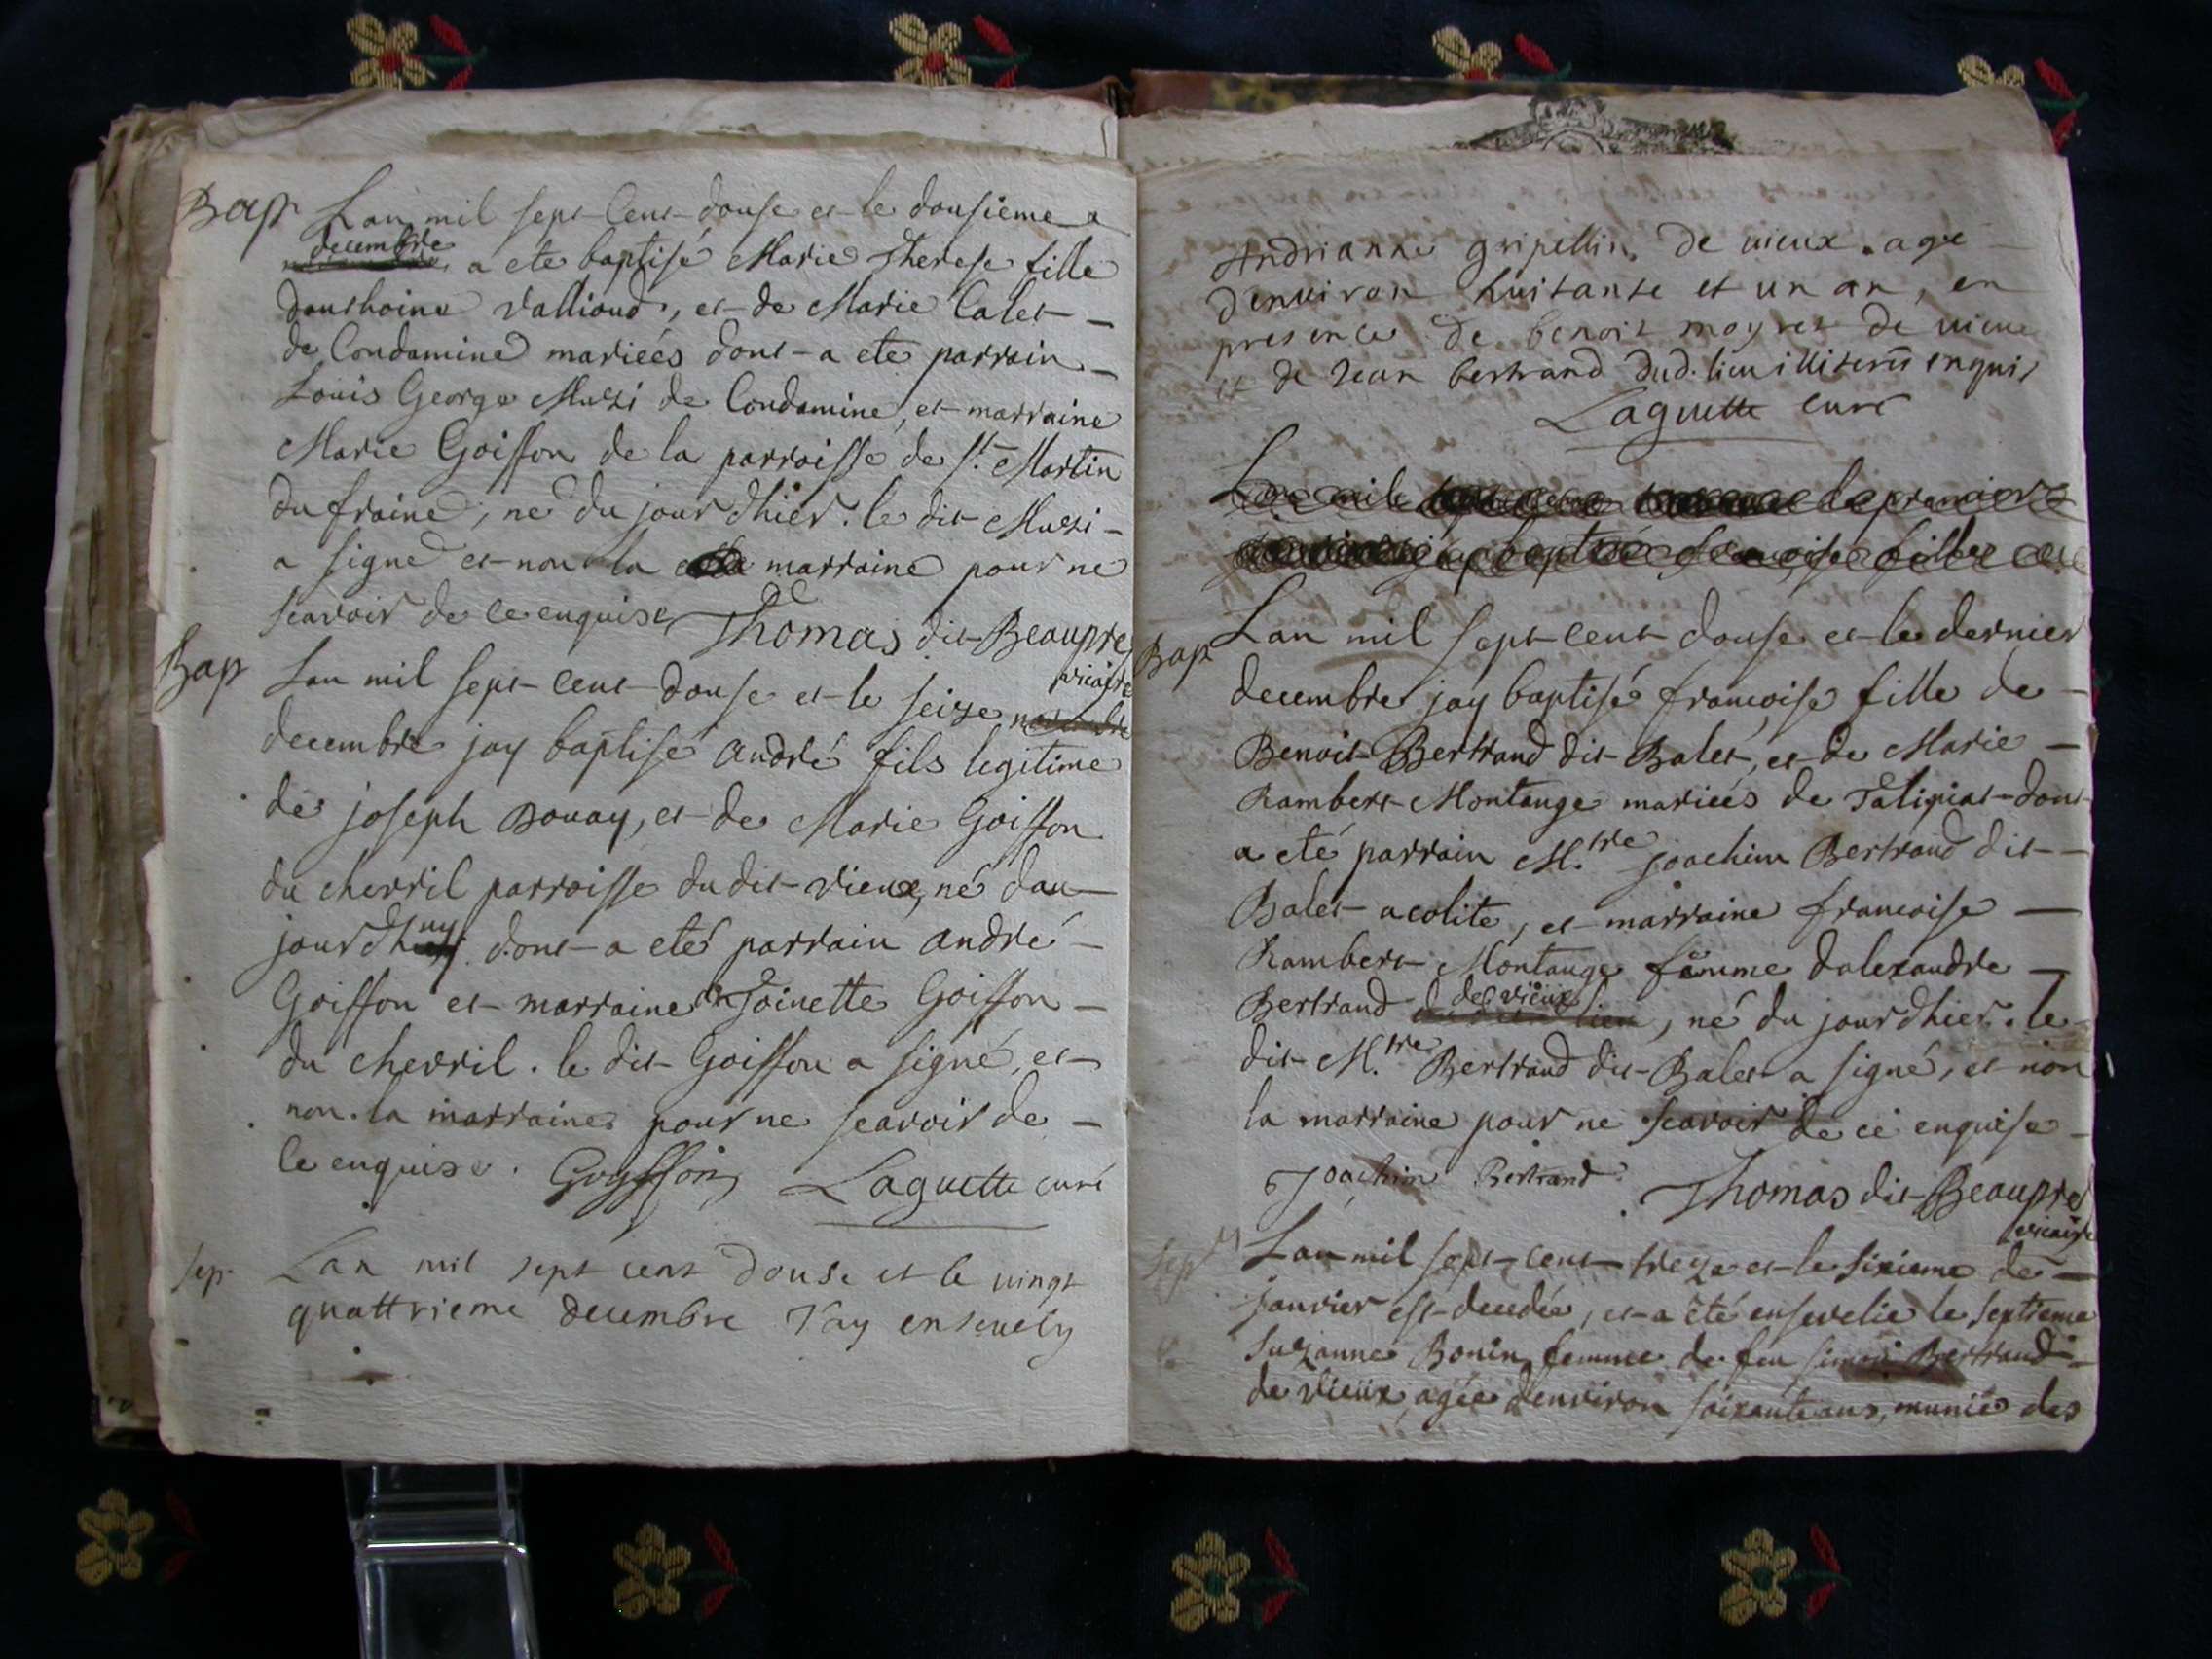 Bap Lan mil sept cent douse et le dousieme
decembre
a ete baptisé Marie Therese fille
danthoine Vallioud, et de Marie Calet
de Condamine mariéés dont a ete parrain
Louis George Muzi de Condamine, et marraine
Marie Goiffon de la parroisse de St. Martin
du fraine, né du jour dhier. le dit Muzi
a signé et non la marraine pour ne
scavoir de ce enquise Thomas dit Beaupre
vicaire
Bap Lan mil sept cent douse et le seize
decembre jay baptisé andré fils legitime
de joseph Bouay, et de Marie Goiffon
du cherril parroisse du dit vieux, né dau
jourdhuy. dont a eté parrain andré
Goiffon et marraine Toinette Goiffon
du cherril. le dit Goiffon a signé, et
non la marraine pour ne scavoir de
ce enquise. Goyffon Laguette curé
sep. Lan mil sept cent douse et le vingt
quattrieme decembre J'ay ensevely
Andrianne gripellin de vieux agé
d'environ huitante et un an, en
presence de benoit moyret de vieu
et de Jean bertrand dud. lieu illiterés enquis
Laguette curé
Lan mil le premier
baptisé françoise fille de
Bap Lan mil sept cent douse et le dernier
decembre jay baptisé françoise fille de
Benoit Bertrand dit Balet, et de Marie
Rambert Montange mariéés de Talipiat dont
a eté parrain M.tre joachim Bertrand dit
Balet acolite, et marraine francoise
Rambert Montange fámme dalexandre
de vieux
Bertrand , né du jour dhier. le
dit M.tre Bertrand dit Balet a signé, et non
la marraine pour ne scavoir de ce enquise
Joachim Bertrand Thomas dit Beaupre
vicaire
Sep Lan mil sept cent treze et le sixieme de
janvier est decedée, et a eté ensevelie le septieme
Suzanne Bonin femme de feu simon Bertrand
de vieux, agée denviron soixante ans, munie des